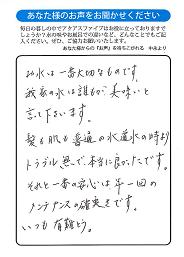 あなた様のお声をお聞かせください
毎日の暮しの中でアクアスファイアはお役に立っておりますで
しょうか？水の味やお風呂での違いなど、どんなことでもご記
入ください。ぜひ、ご協力お願いいたします。
あなた様からの「お声」を待ちこがれる 中本より
お水は一番大切なものです。
我家の水は誰もが美味いと
言って下さいます。
髪も肌も普通の水道水の時より
トラブル無しで本当に良かったです。
それと一番の安心は年一回の
メンテナンスの確実さです。
いつも有難とう。